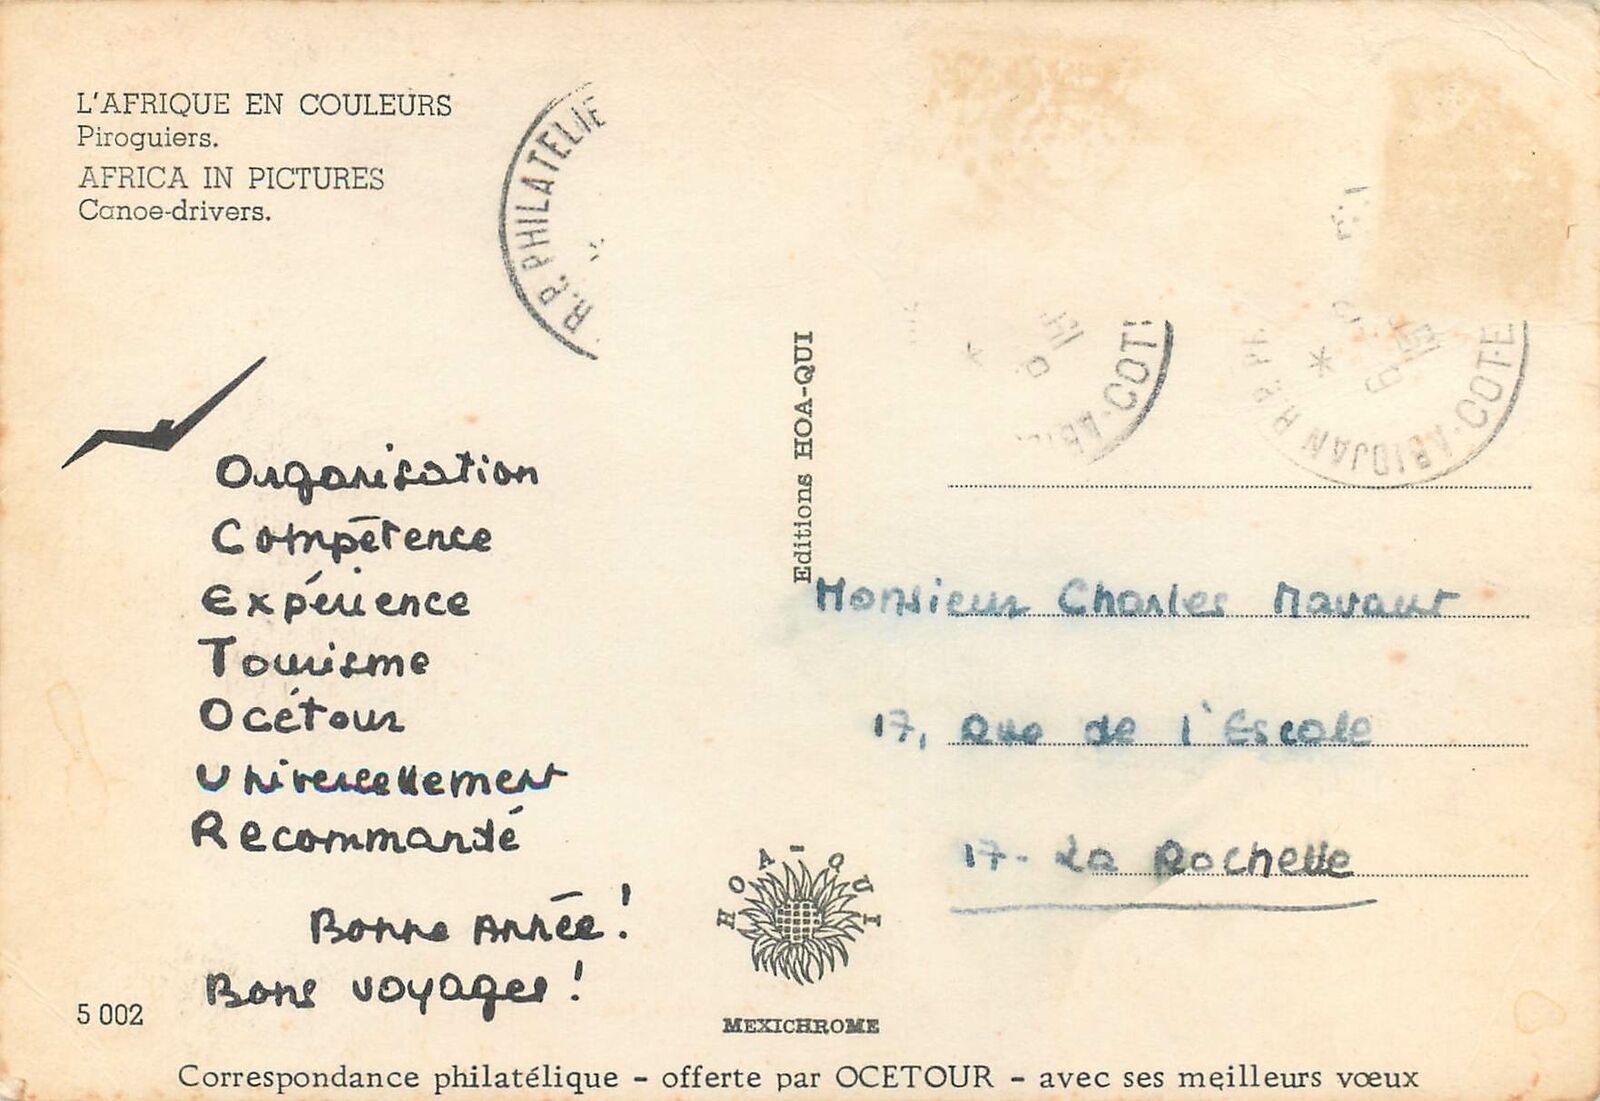 L'AFRIQUE EN COULEURS
Piroguiers.
AFRICA IN PICTURES
Canoe-drivers.
R.P. PHILATELIE
ABIDJAN R.P. PH
-COTE
ABI -COTI
Editions HOA-QUI
Organisation
Compétence
Expérience
Tourisme
Océtour
Universellement
Recommandé
Bonne Année!
Bons voyages!
Monsieur Charles Mavaut
17, Rue de l'Escale
17- La Rochelle
HOA-QUI
MEXICHROME
5 002
Correspondance philatélique - offerte par OCETOUR - avec ses meilleurs vœux